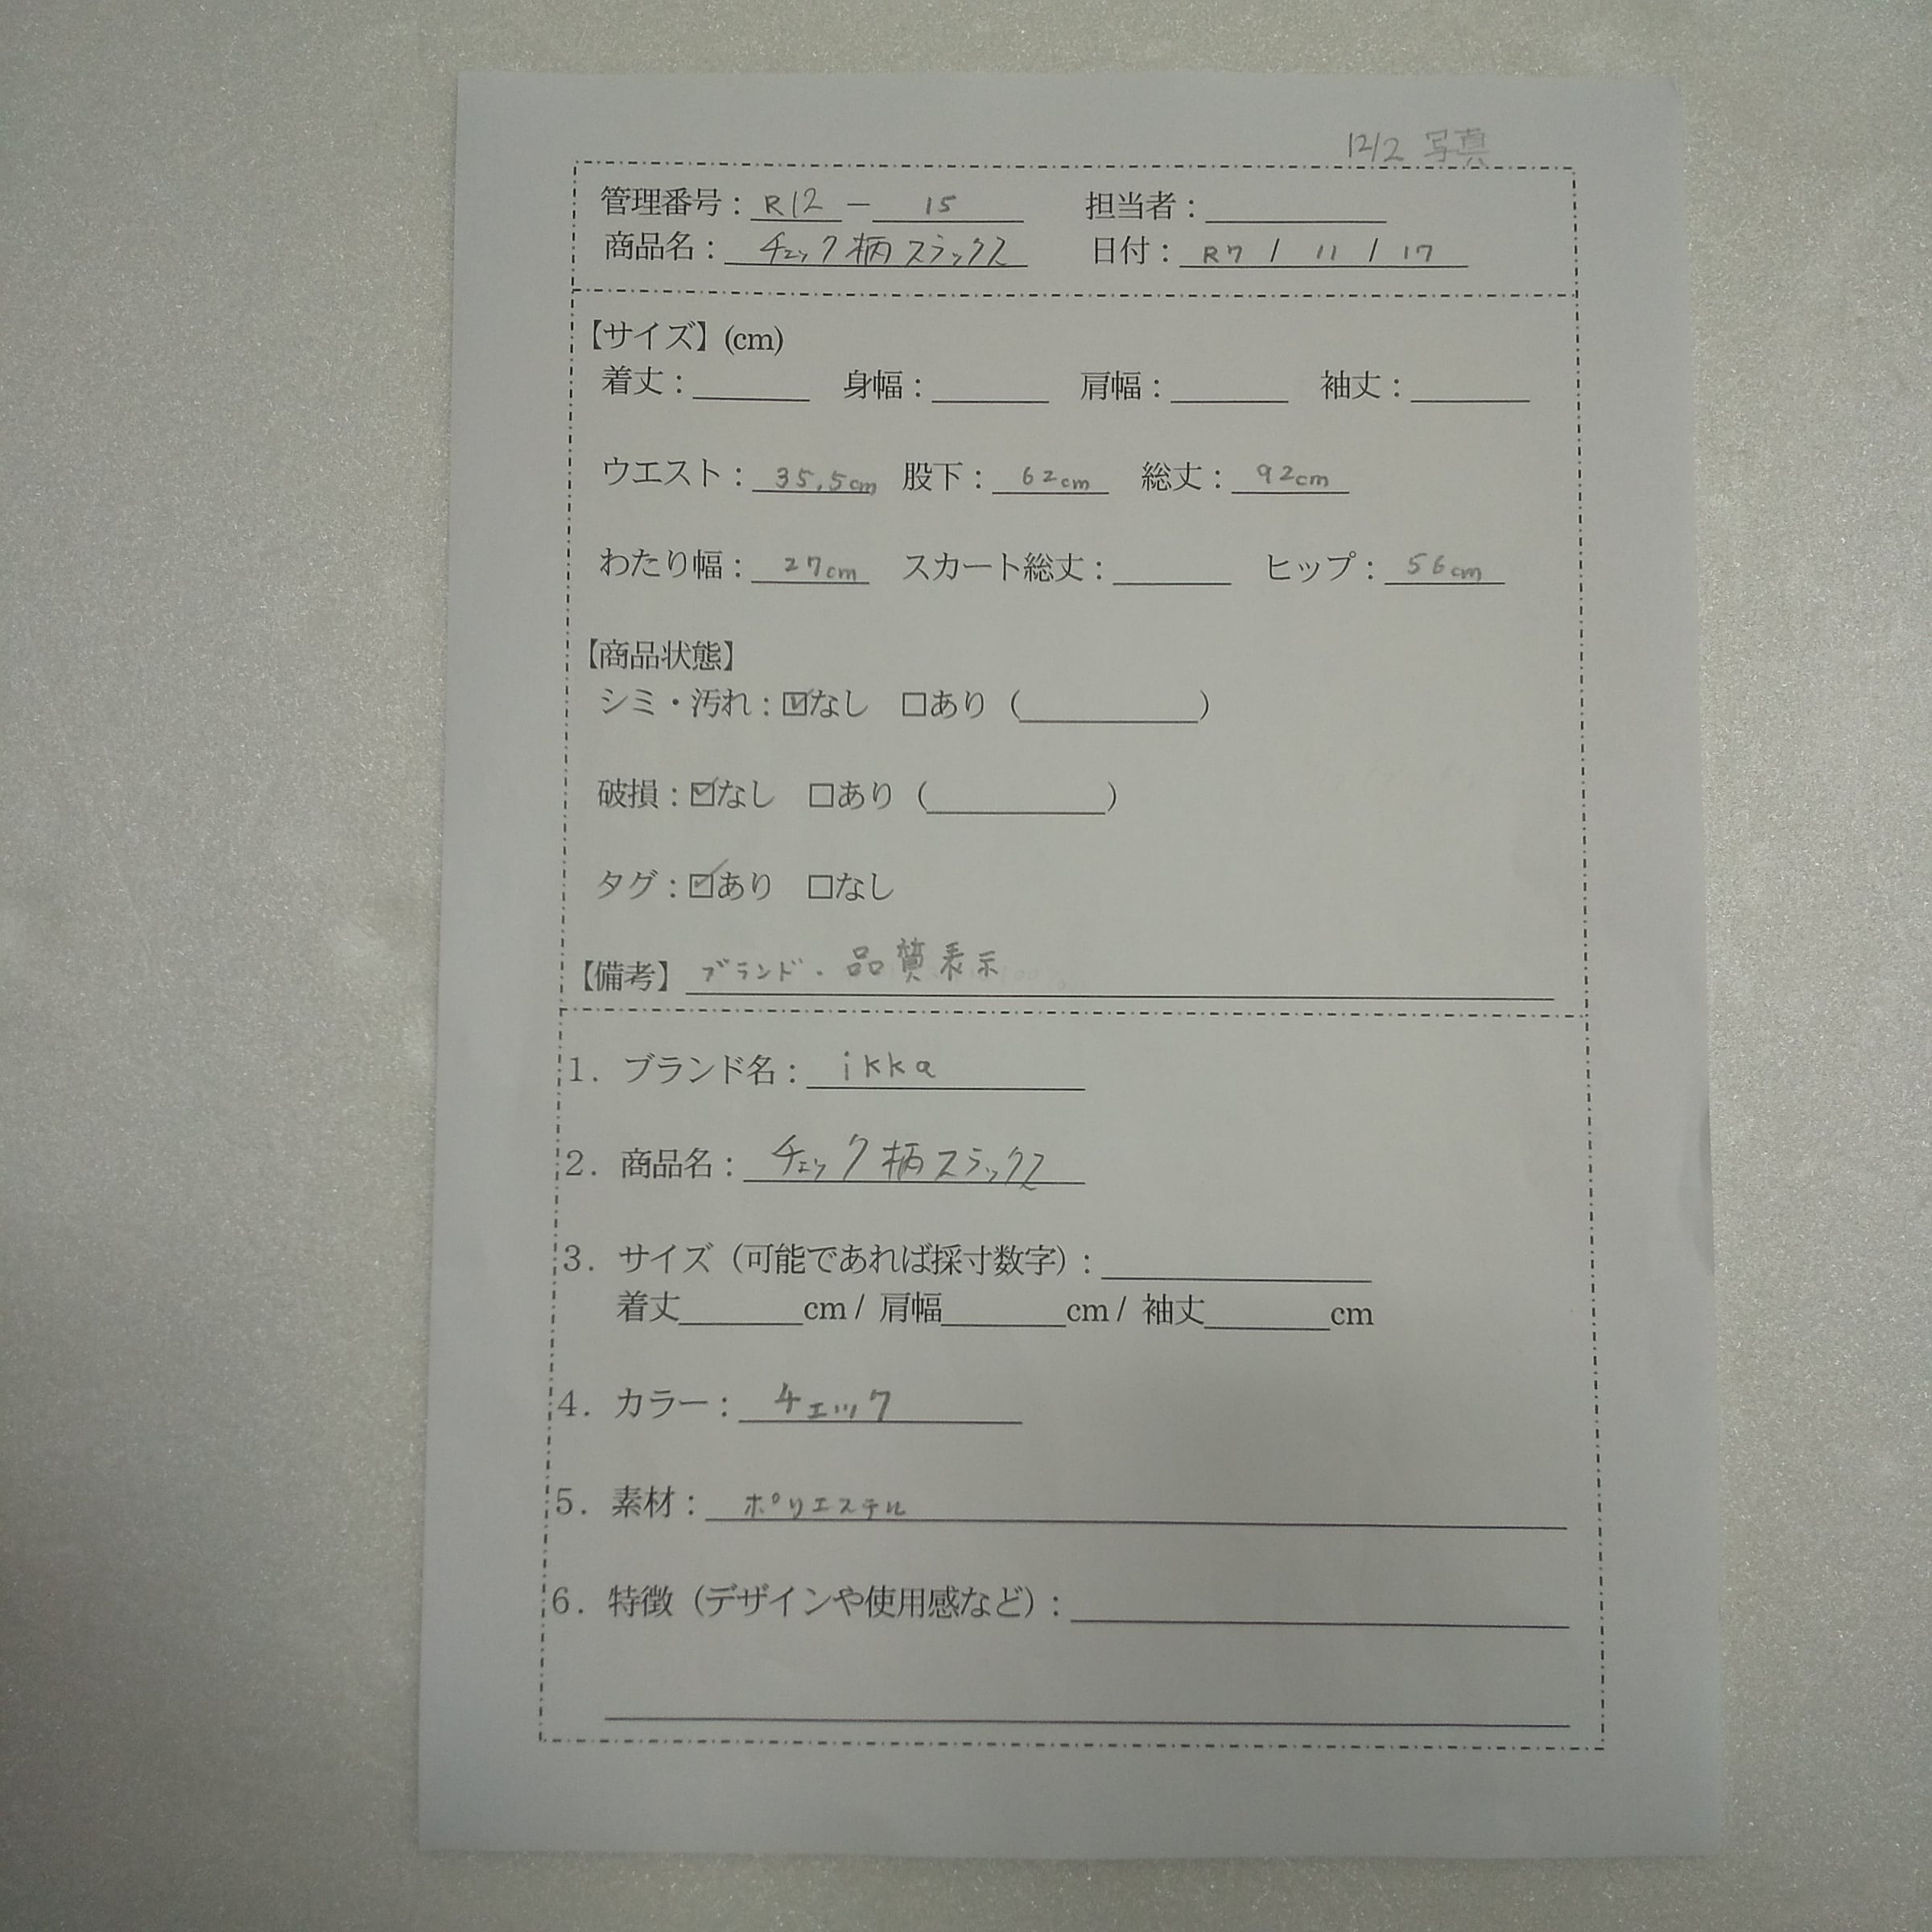 12/2 写真
管理番号：R12 － 15 担当者：
商品名：チェック柄スラックス 日付：R7 / 11 / 17
【サイズ】(cm)
着丈： 身幅： 肩幅： 袖丈：
ウエスト：35.5cm 股下：62cm 総丈：92cm
わたり幅：27cm スカート総丈： ヒップ：56cm
【商品状態】
シミ・汚れ：☑なし □あり（ ）
破損：☑なし □あり（ ）
タグ：☑あり □なし
【備考】ブランド・品質表示
1．ブランド名：ikka
2．商品名：チェック柄スラックス
3．サイズ（可能であれば採寸数字）：
着丈 cm / 肩幅 cm / 袖丈 cm
4．カラー：チェック
5．素材：ポリエステル
6．特徴（デザインや使用感など）：